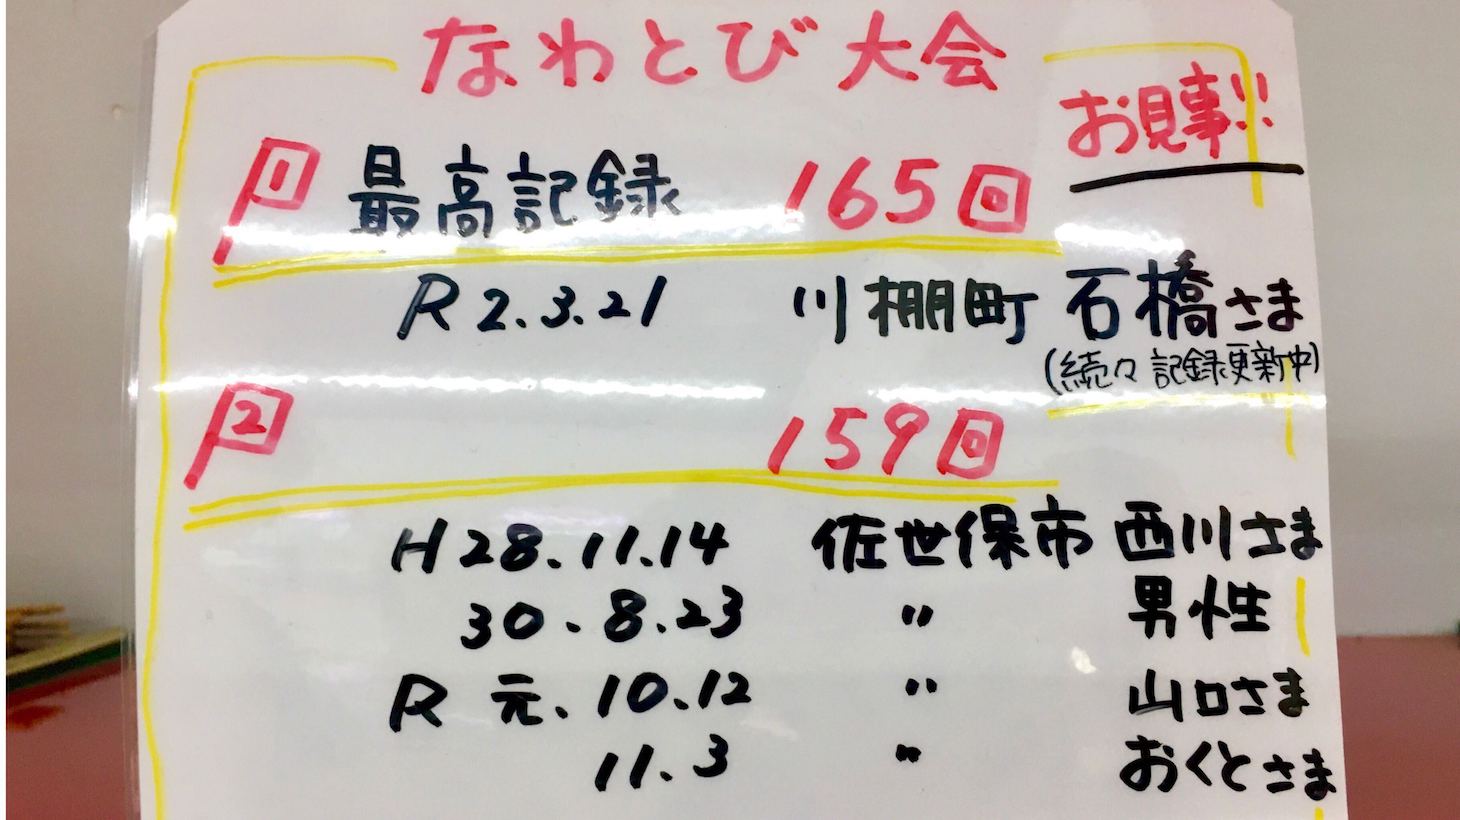 なわとび大会
お見事!!
1 最高記録 165回
R2.3.21 川棚町 石橋さま
(続々記録更新中)
2 159回
H28.11.14 佐世保市 西川さま
30.8.23 〃 男性
R元.10.12 〃 山口さま
11.3 〃 おくとさま